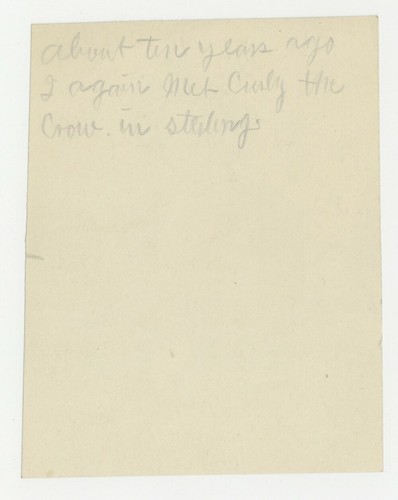 about ten years ago
I again Met Curly the
Crow. in sterling.